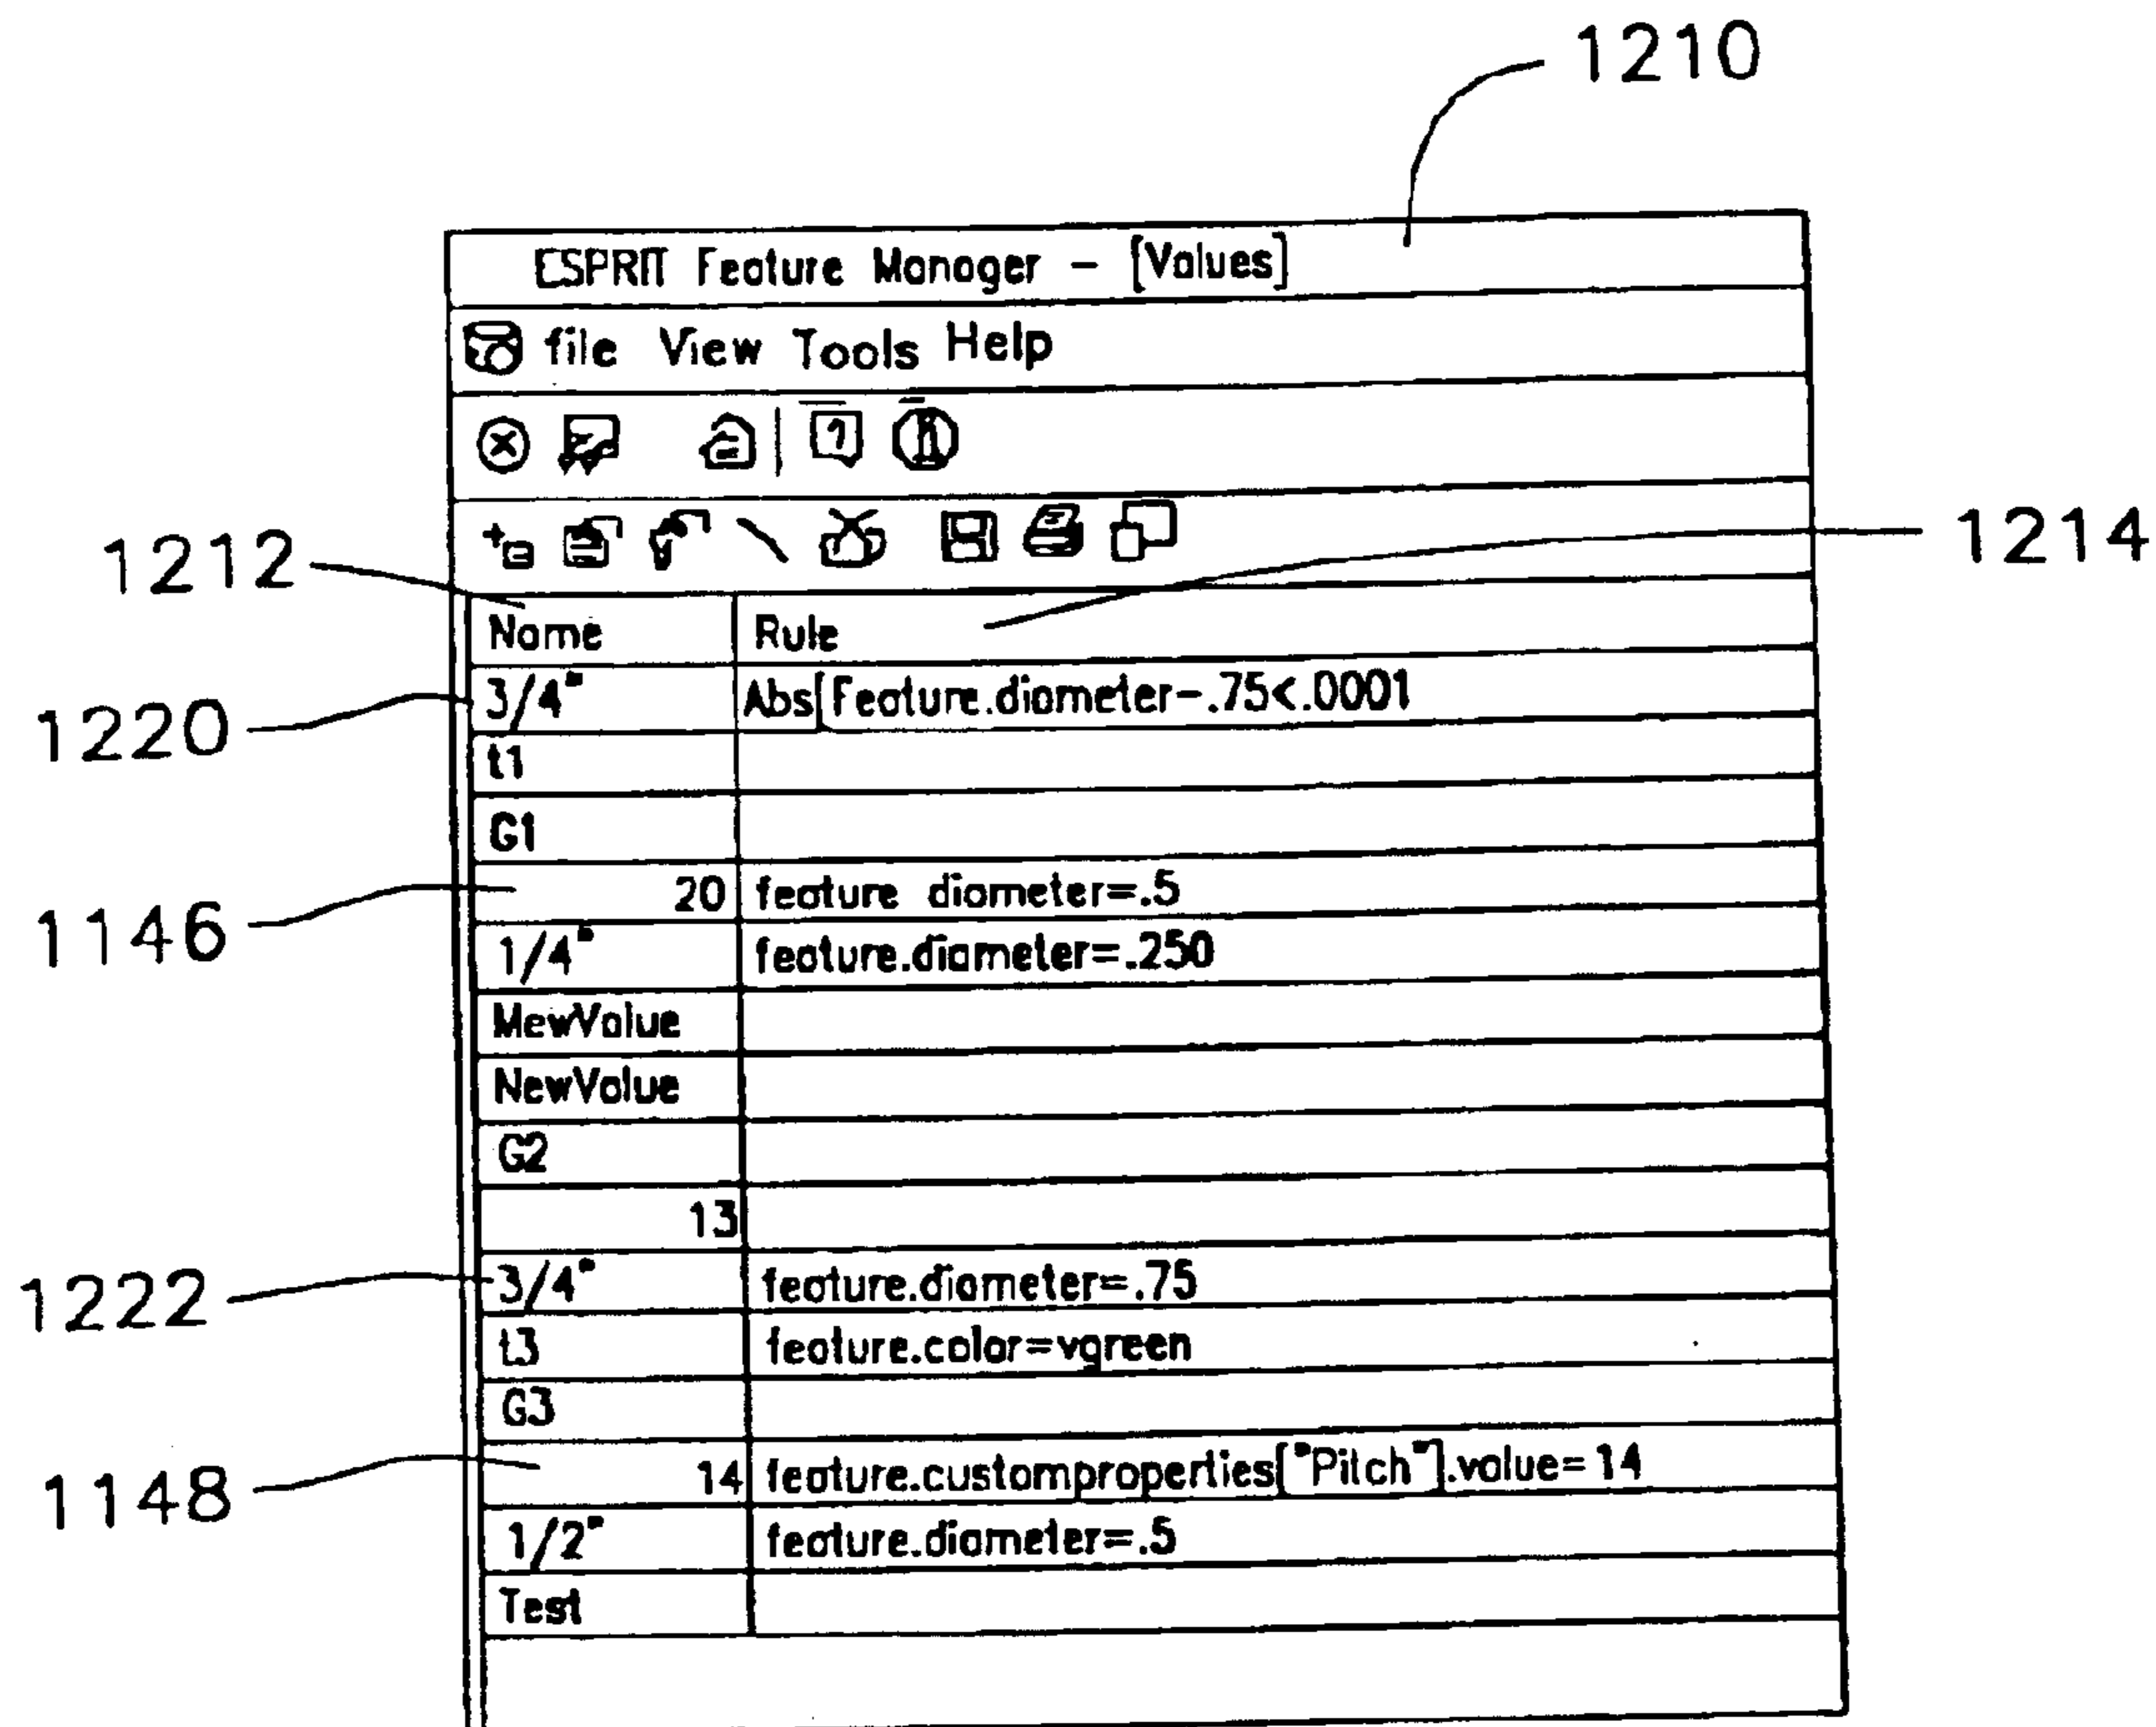 1210
ESPRIT Feature Manager - [Values]
file View Tools Help
1212
1214
Name Rule
1220
3/4" Abs[Feature.diameter-.75<.0001
t1
G1
1146
20 feature diameter=.5
1/4" feature.diameter=.250
MewValue
NewValue
G2
13
1222
3/4" feature.diameter=.75
t3 feature.color=vgreen
G3
1148
14 feature.customproperties["Pitch"].value=14
1/2" feature.diameter=.5
Test